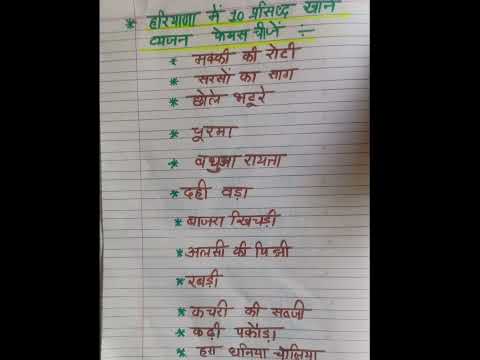 * हरियाणा में 10 प्रसिध्द खाने
व्यजन फेमस चीजें ÷
* मक्की की रोटी
* सरसों का साग
* छोले भटूरे
* चूरमा
* बथुआ रायता
* दही वड़ा
* बाजरा खिचड़ी
* अलसी की पिन्नी
* रबड़ी
* कचरी की सब्जी
* कढ़ी पकौड़ा
* हरा धनिया चोलिया